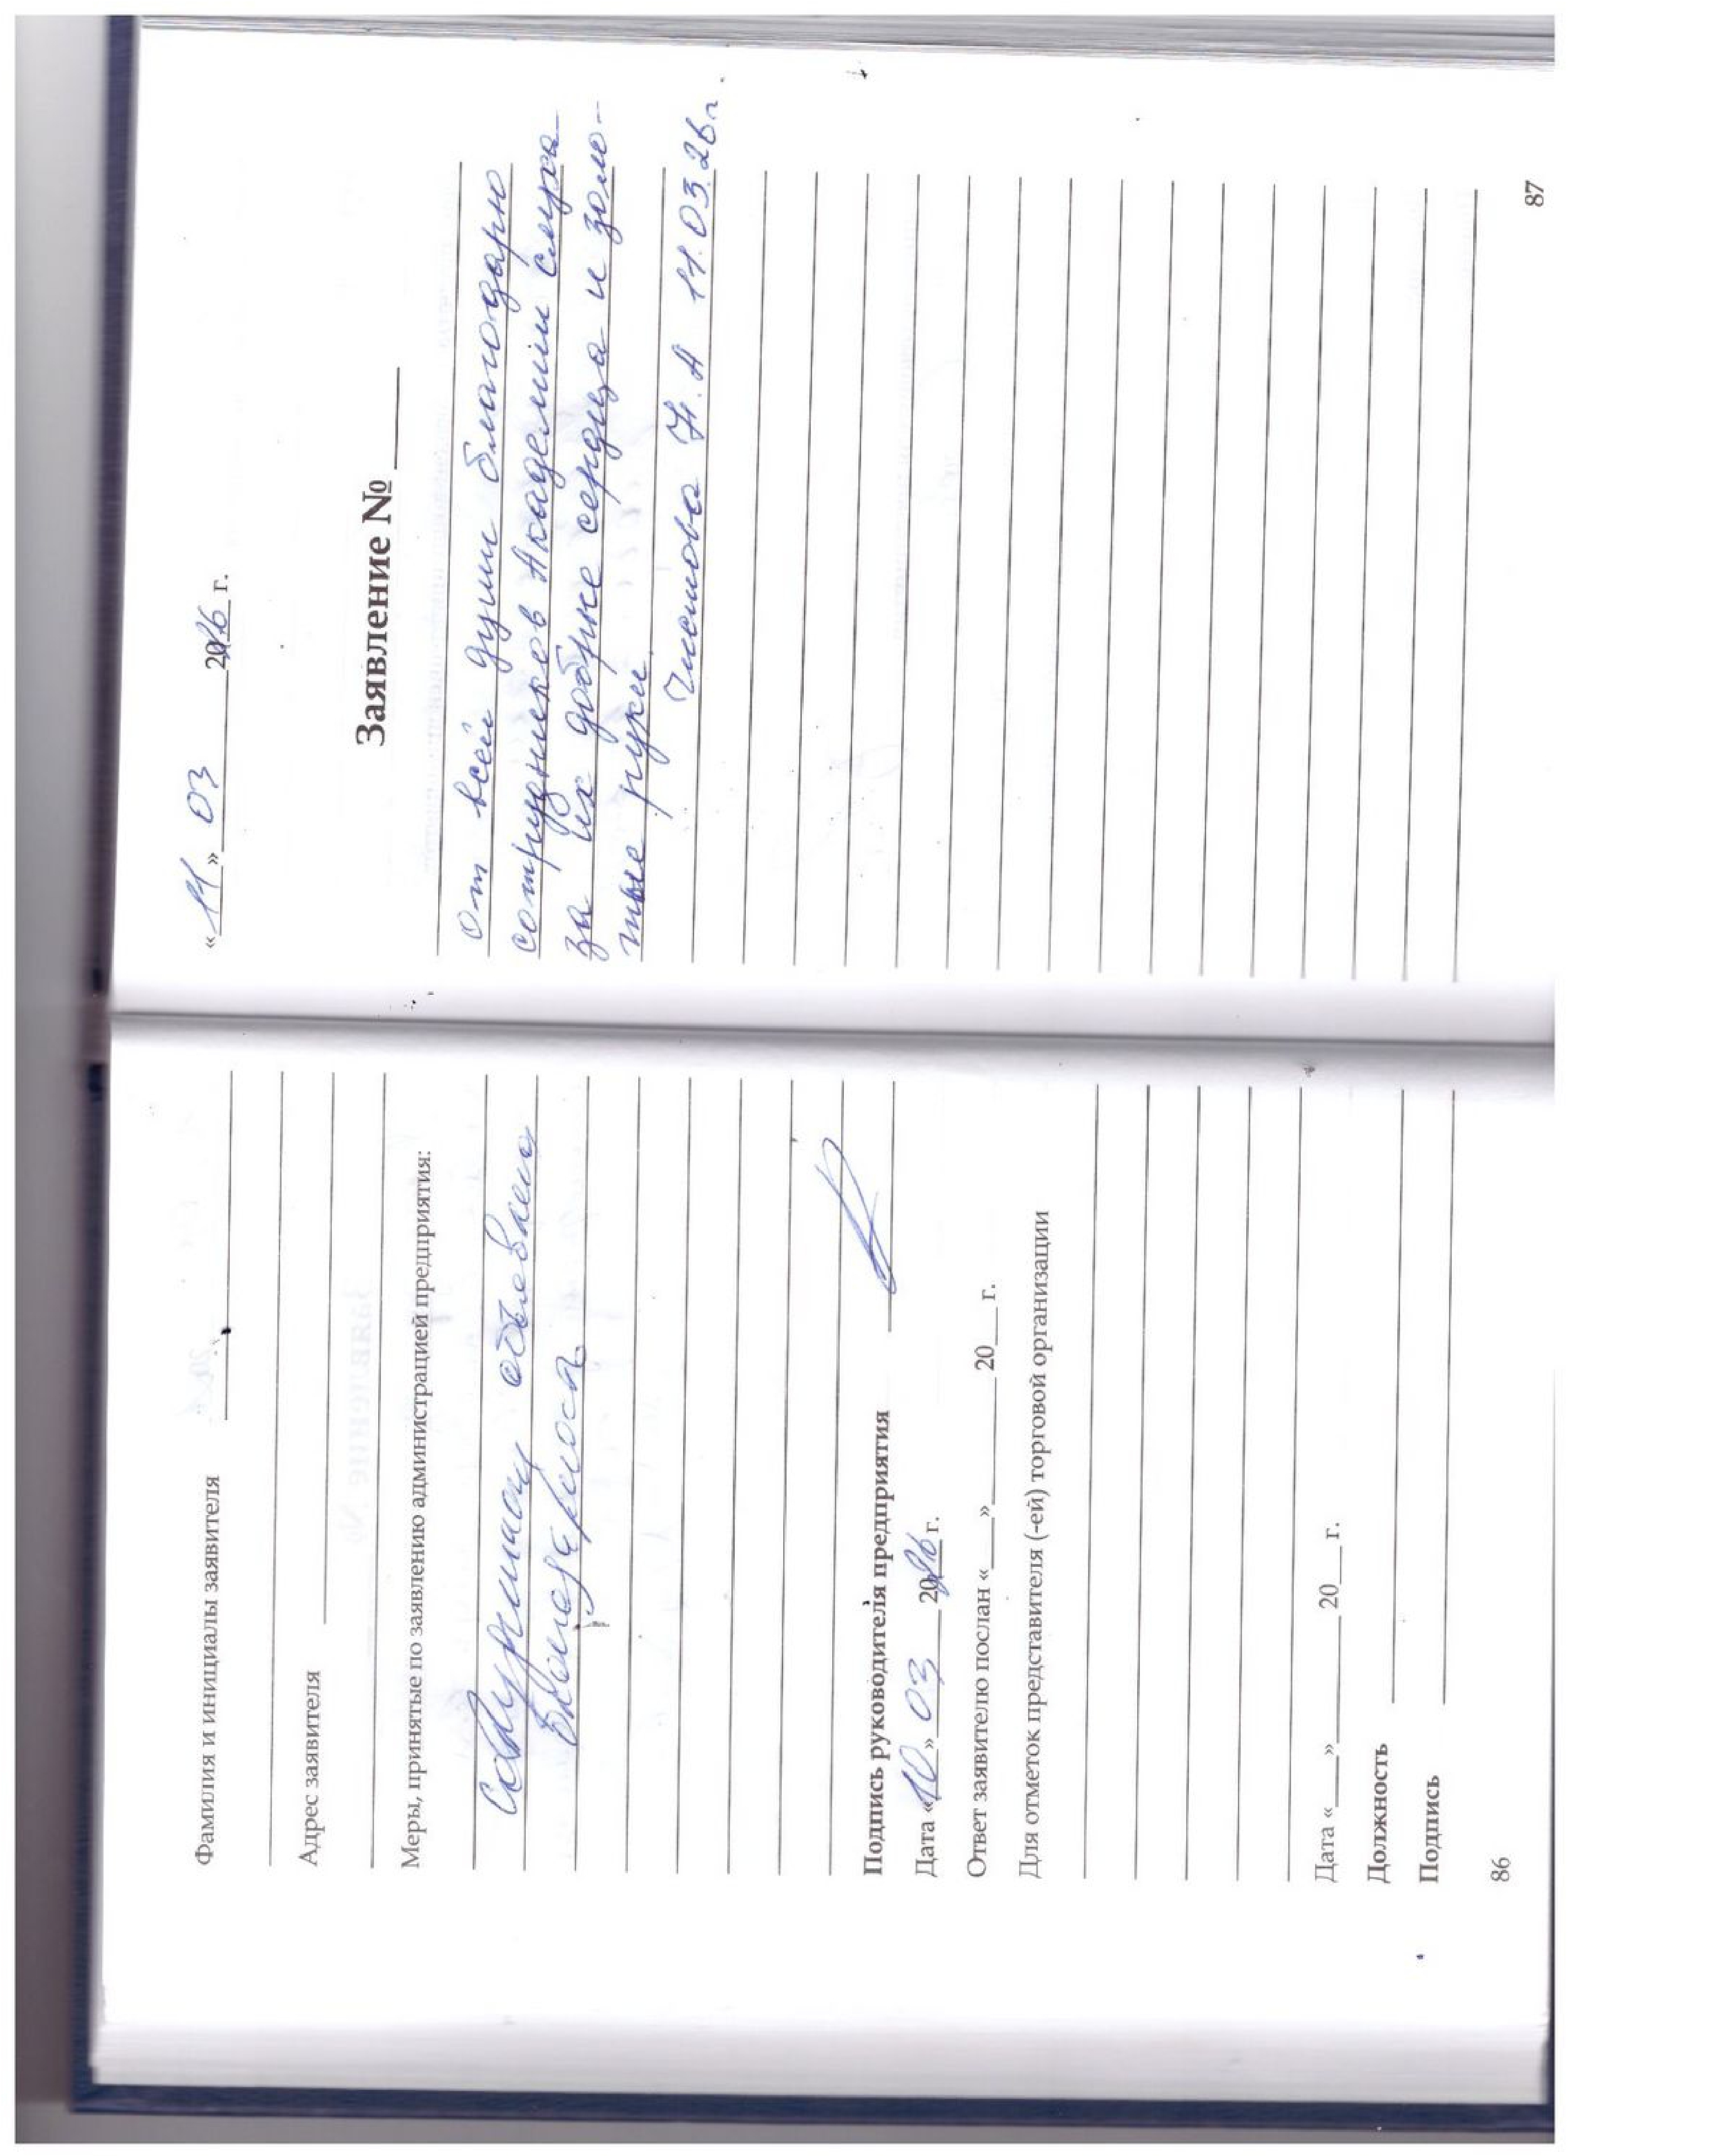 Фамилия и инициалы заявителя
Адрес заявителя
Меры, принятые по заявлению администрацией предприятия:
объявлена
благодарность
Подпись руководителя предприятия
Дата «10» 03 2026 г.
Ответ заявителю послан «___» ______ 20___ г.
Для отметок представителя (-ей) торговой организации
Дата «___» ______ 20___ г.
Должность
Подпись
86
«11» 03 2026 г.
Заявление №
От всей души благодарю
сотрудников Академии слуха
за их добрые сердца и золо-
тые руки.
Чистова Н. А 11.03.26г.
87